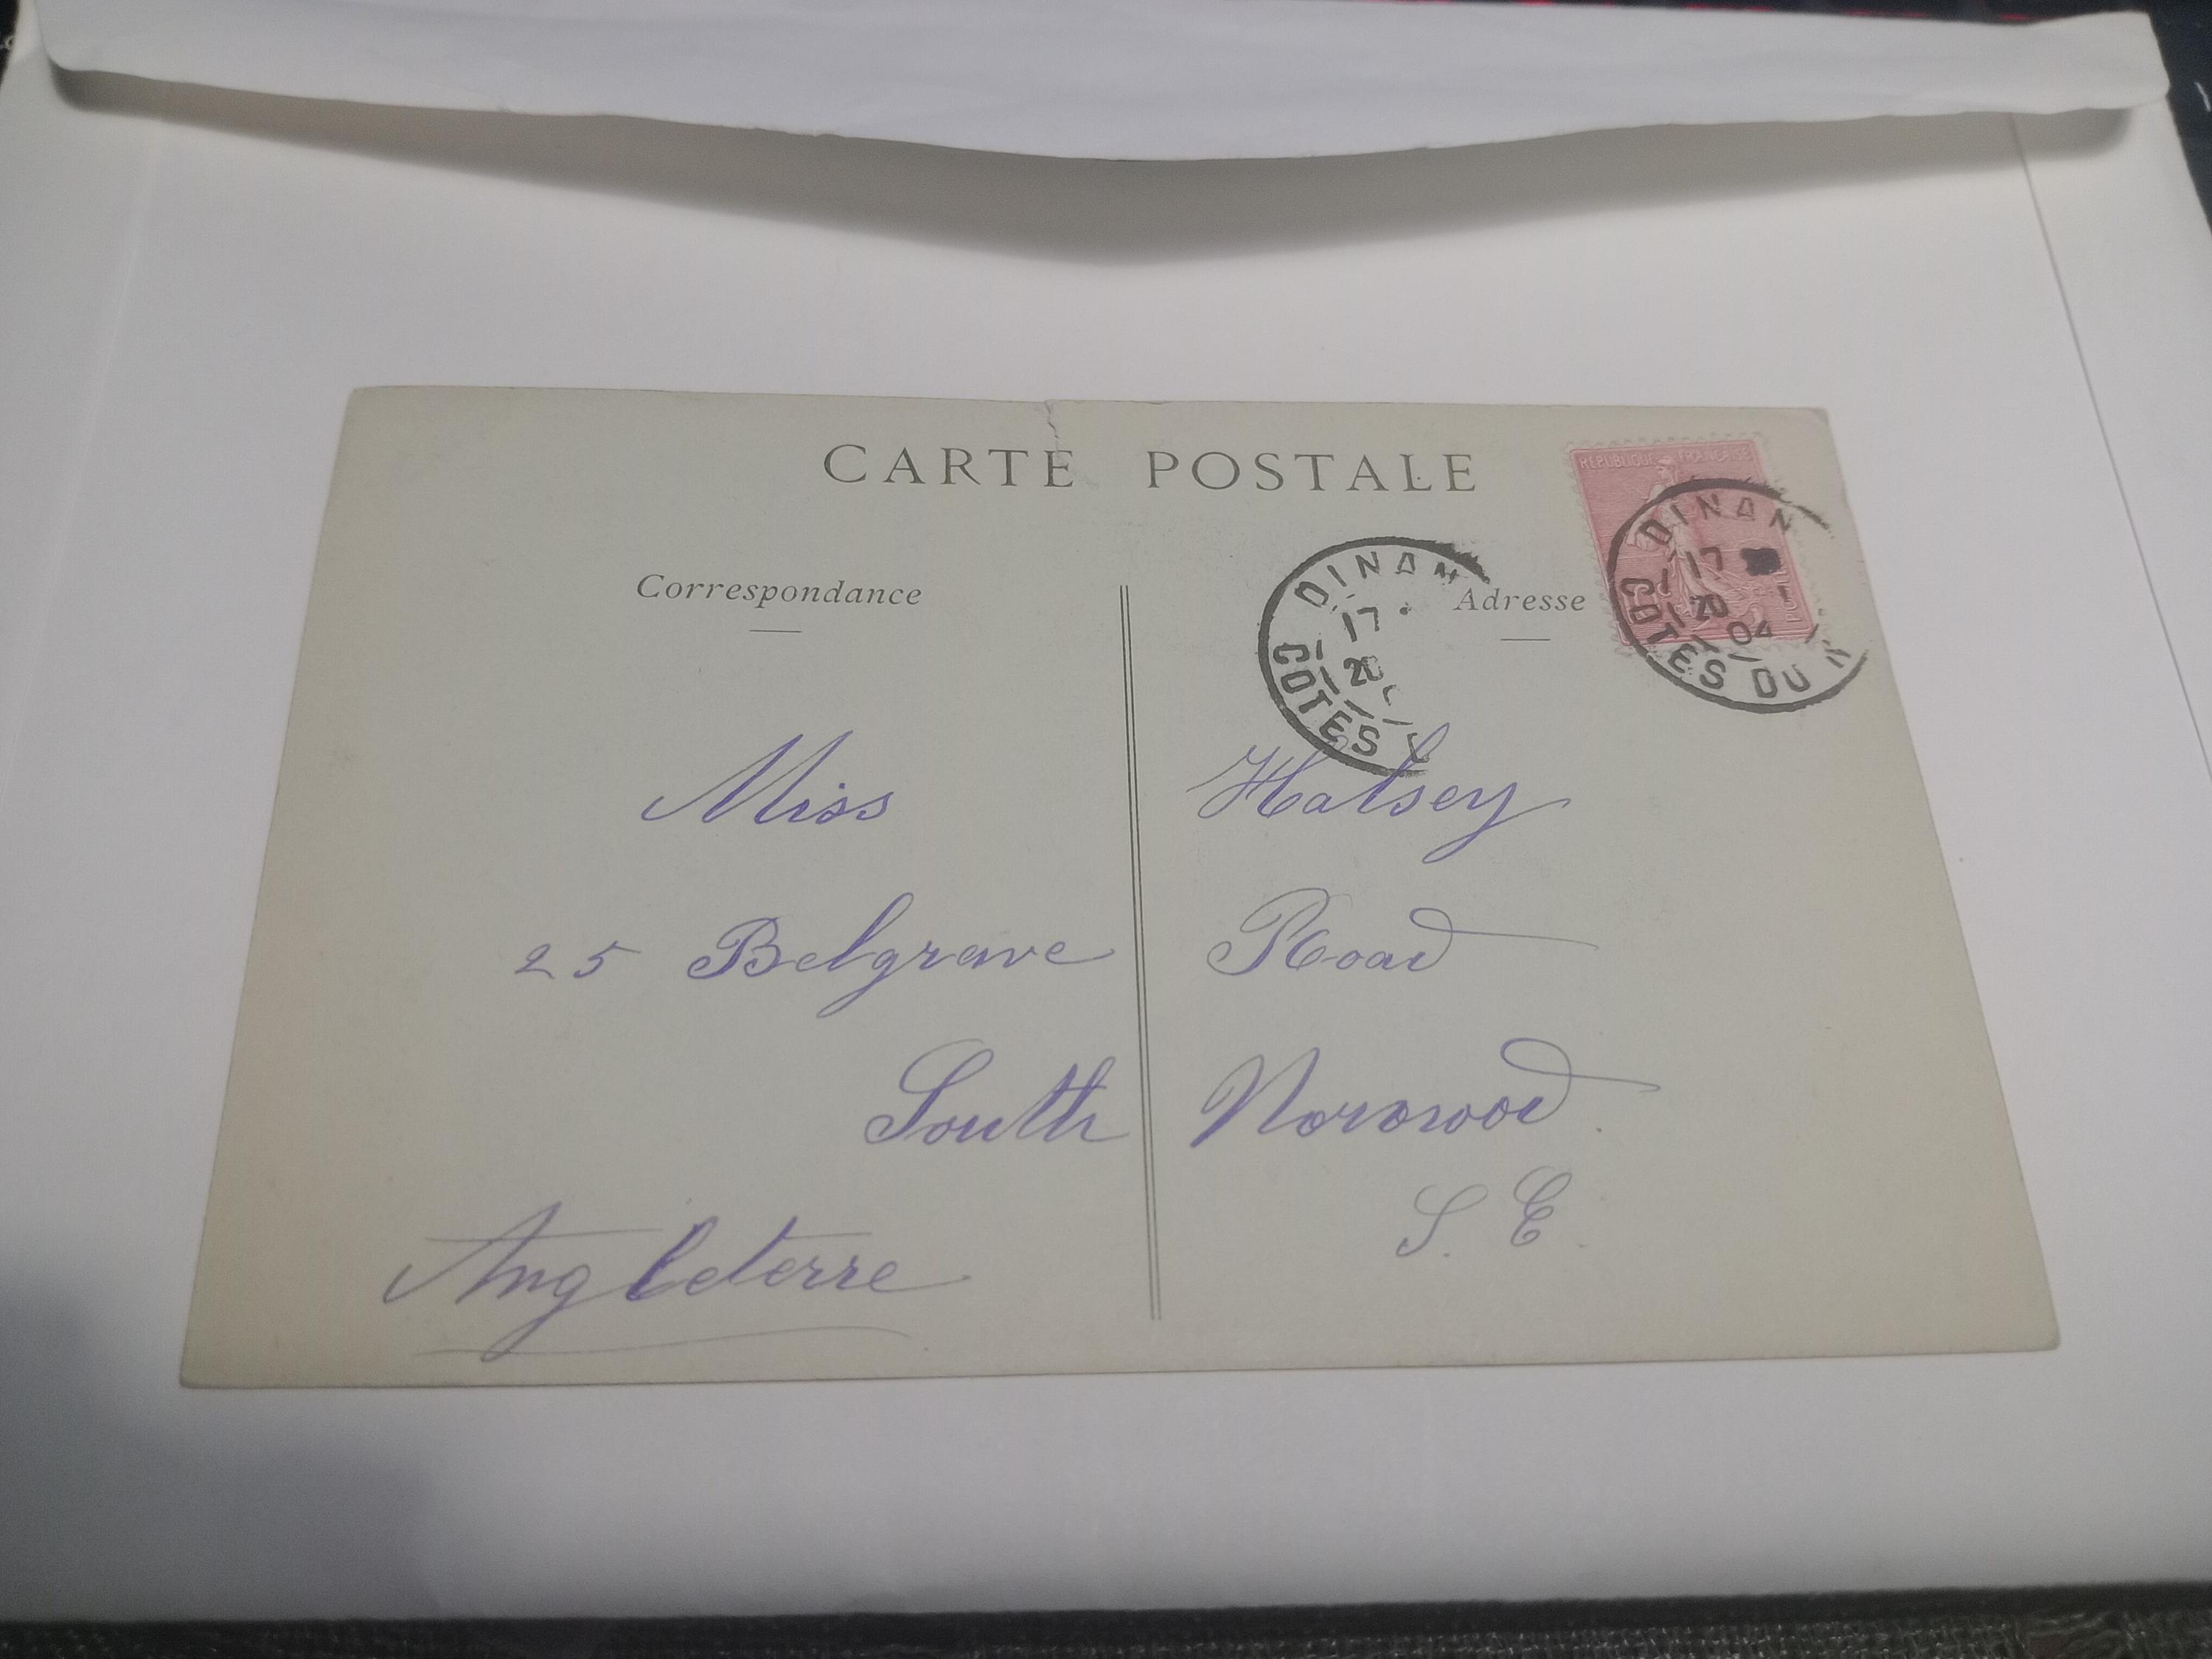 CARTE POSTALE
REPUBLIQUE FRANCAISE
DINAN
17
20
04
COTES DU N
DINAN
17
20
COTES D
Correspondance
Adresse
Miss Halsey
25 Belgrave Road
South Norwood.
S. E.
Angleterre